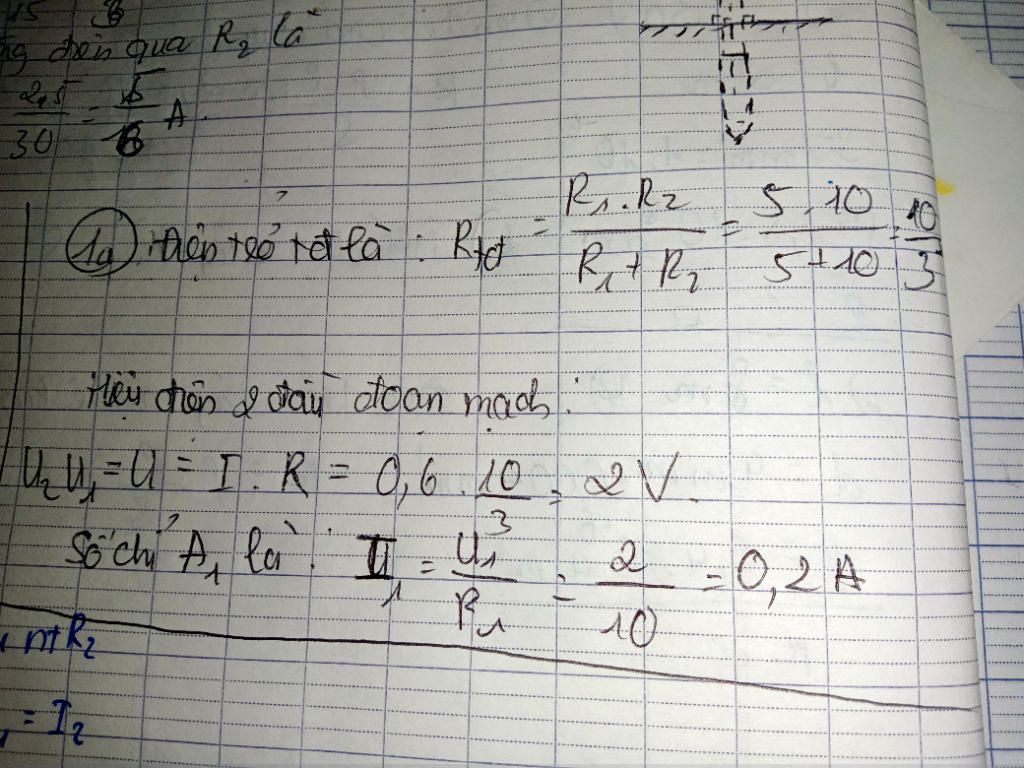 điện qua R₂ là
2,5/30 = 5/6 A.
1a điện trở tđ là : Rtđ = R₁.R₂/R₁+R₂ = 5.10/5+10 = 10/3
Hiệu điện 2 đầu đoan mach:
U₂ U₁ = U = I . R = 0,6 . 10/3 = 2 V.
Số chỉ A₁ là : I₁ = U₁/R₁ = 2/10 = 0,2 A
nt R₂
= I₂